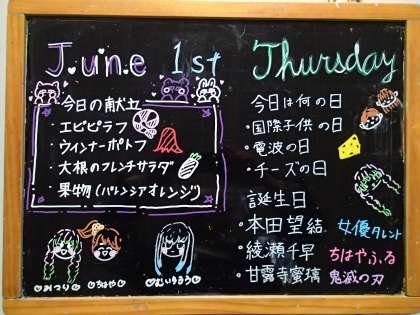 June 1st Thursday
今日の献立
・エビピラフ
・ウィンナーポトフ
・大根のフレンチサラダ
・果物(バレンシアオレンジ)
今日は何の日
・国際子供の日
・電波の日
・チーズの日
誕生日
・本田望結 女優タレント
・綾瀬千早 ちはやふる
・甘露寺蜜璃 鬼滅の刃
♡みつり♡
♡ちはや♡
♡むいちろう♡